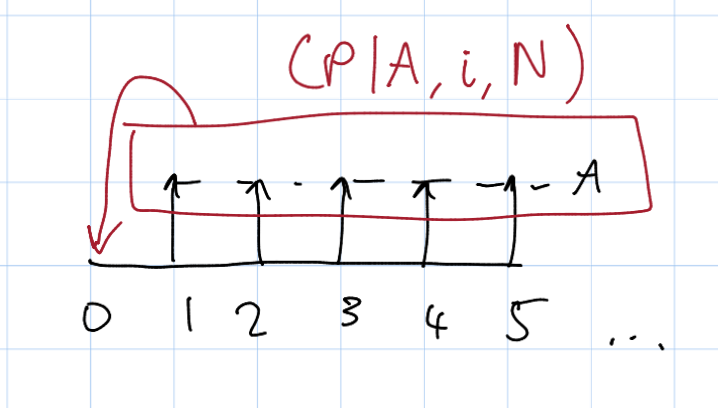 (P|A, i, N)
A
0 1 2 3 4 5 ...